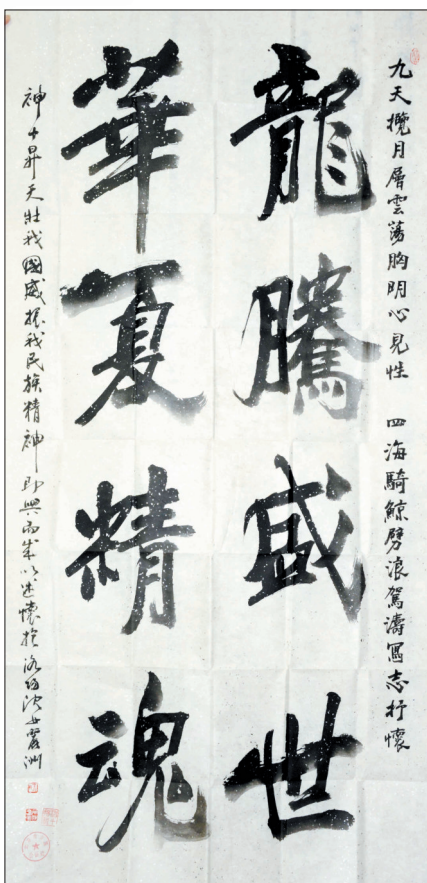 九天攬月層雲蕩胸明心見性 四海騎鯨劈浪駕濤寫志抒懷
龍騰盛世
華夏精魂
神十昇天壯我國威振我民族精神即興而成以述懷於洛